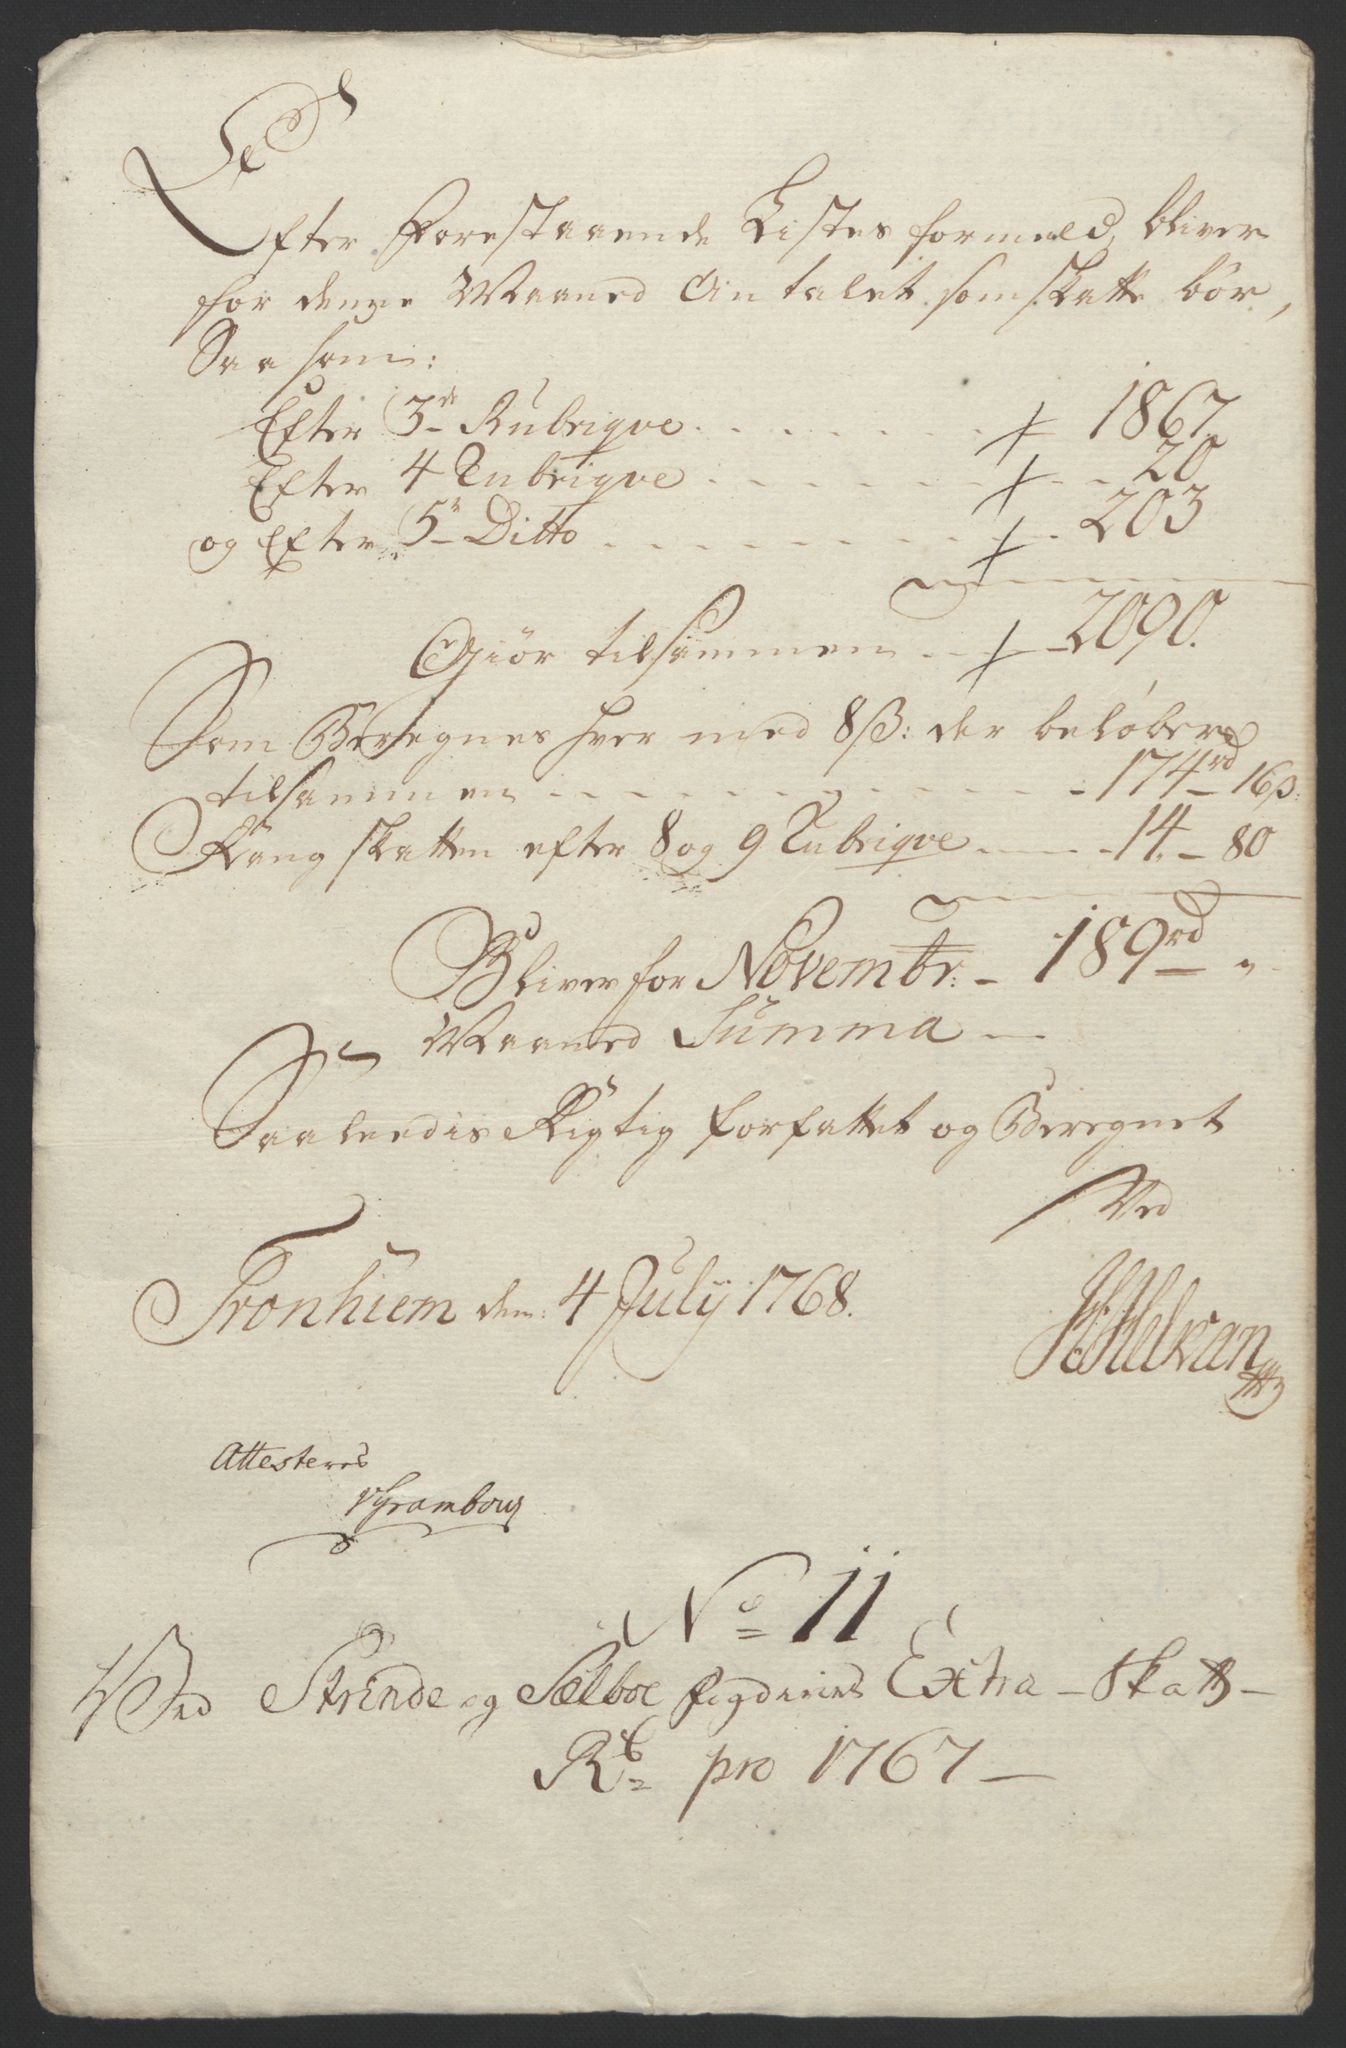 Efter Forestaaende Listes formeld, bliver
for denne Maaned Antalet som skatte bør,
Saasom:
Efter 3de Rubriqve . . . . . . . 1867.
Efter 4 Rubriqve . . . . . . . 20
og Efter 5te Ditto . . . . . . . 203
Giør tilsammen . . . 2090.
Som Beregnes hver med 8ß: der beløber
tilsammen . . . . . . . 174rd 16ß:
Rang skatten efter 8 og 9 Rubriqve . . . 14. – 80
Bliver for Novembr: – 189rd „
Maaned Summa —
Saaleedis Rigtig forfattet og Beregnet
Ved
Tronhiem den: 4 July 1768.
Attesteres
No 11
Ved Strinde og Sælboe fogderies Extra – Skatts –
R pro 1767 —